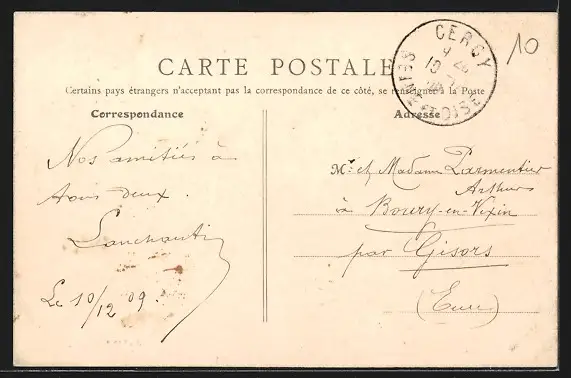 CARTE POSTALE
Certains pays étrangers n'acceptent pas la correspondance de ce côté, se renseigner à la Poste
Correspondance
Nos amitiés à
tous deux.
Le 10/12 09.
Adresse
Mr et Madame Parmentier
Arthur
à Boury-en-Vexin
par Gisors
(Eure)
CERGY
SEINE ET OISE
10